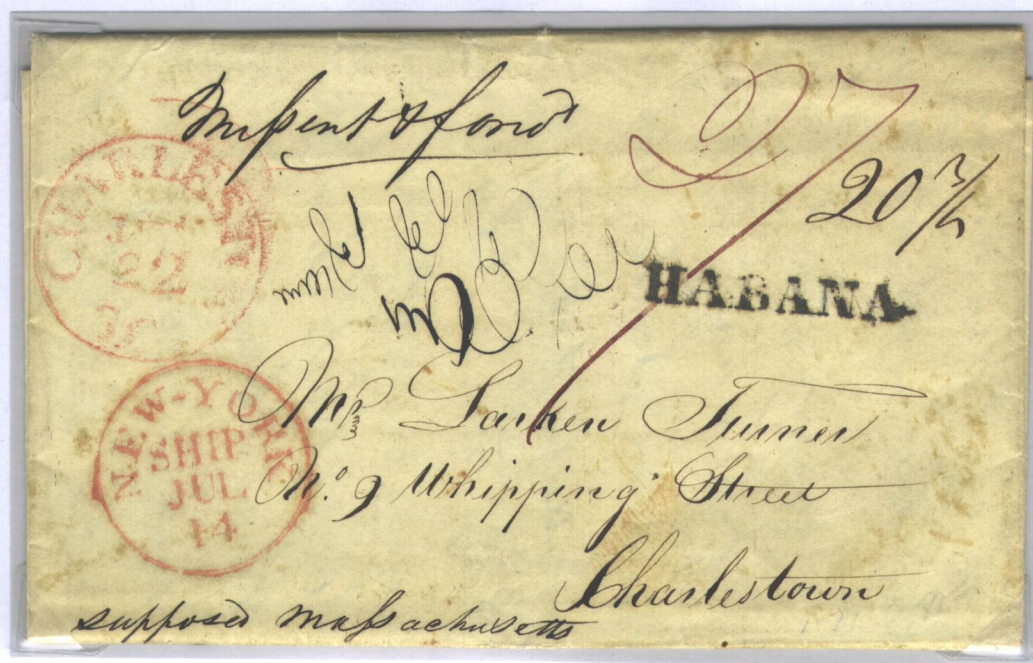 Missent & forwd
27
20 3/4
CHARLEST
JUL
22
HABANA
NEW-YORK
SHIP
JUL
14
Mr Larken Turner
No. 9 Whipping Street
Charlestown
supposed Massachusetts